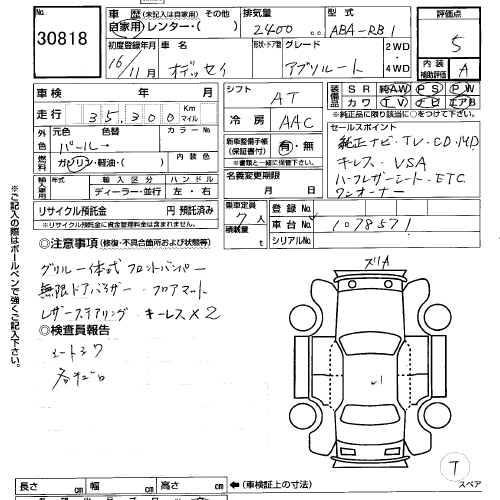 No.
30818
車歴 (未記入は自家用) その他
自家用・レンター・( )
排気量
2400 cc
型式
ABA-RB1
評価点
5
内装
補助評価
A
初度登録年月
16/11月
車名
オデッセイ
形状・ドア数
グレード
アブソルート
2WD
4WD
車検
年 月
走行
35,300 Km
マイル
シフト
AT
冷房
AAC
装備品
SR 純AW PS PW
カワ TV ナビ エアB
※純正品に限り該当に○をつけて下さい。
外色
元色 色替
パール→
カラーNo
燃料
ガソリン・軽油・( )
内装色
新車整備手帳
(保証書付)
有・無
※書類と一緒に保管下さい。
セールスポイント
純正ナビ・TV・CD・MD
キーレス・VSA
ハーフレザーシート・ETC
ワンオーナー
輸入車専用
年式
輸入区分
ディーラー・並行
ハンドル
左・右
名義変更期限
月 日
リサイクル預託金
円
預託済み
※リサイクル預託金に資金管理料金は含まれません。
乗車定員
7人
積載量
t
登録No
車台No
1078571
シリアルNo
◎注意事項 (修復・不具合箇所および状態等)
グリル一体式 フロントバンパー
無限ドアバイザー・フロアマット
レザーステアリング キーレス×2
◎検査員報告
シートシワ
※ご記入の際はボールペンで強くご記入下さい。
スリA
T
スペア
長さ cm
幅 cm
高さ cm
←(車検証上の寸法)